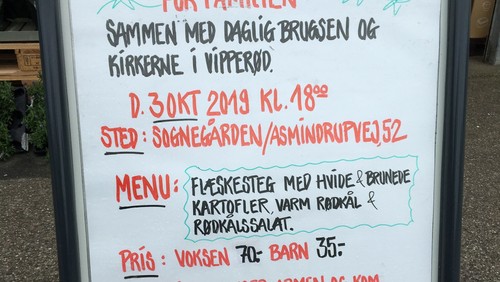 FOR FAMILIEN
SAMMEN MED DAGLIG BRUGSEN OG
KIRKERNE I VIPPERØD.
D. 3 OKT 2019 KL. 18⁰⁰
STED: SOGNEGÅRDEN/ASMINDRUPVEJ, 52
MENU: FLÆSKESTEG MED HVIDE & BRUNEDE
KARTOFLER, VARM RØDKÅL &
RØDKÅLSSALAT.
PRIS: VOKSEN 70.- BARN 35.-
OG KOM